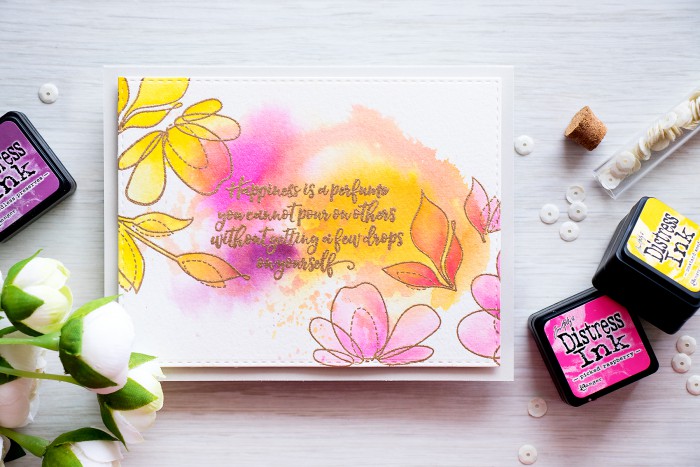 Happiness is a perfume
you cannot pour on others
without getting a few drops
on yourself
Distress
Ink
Distress
Ink
Distress
Ink
picked raspberry
Ranger